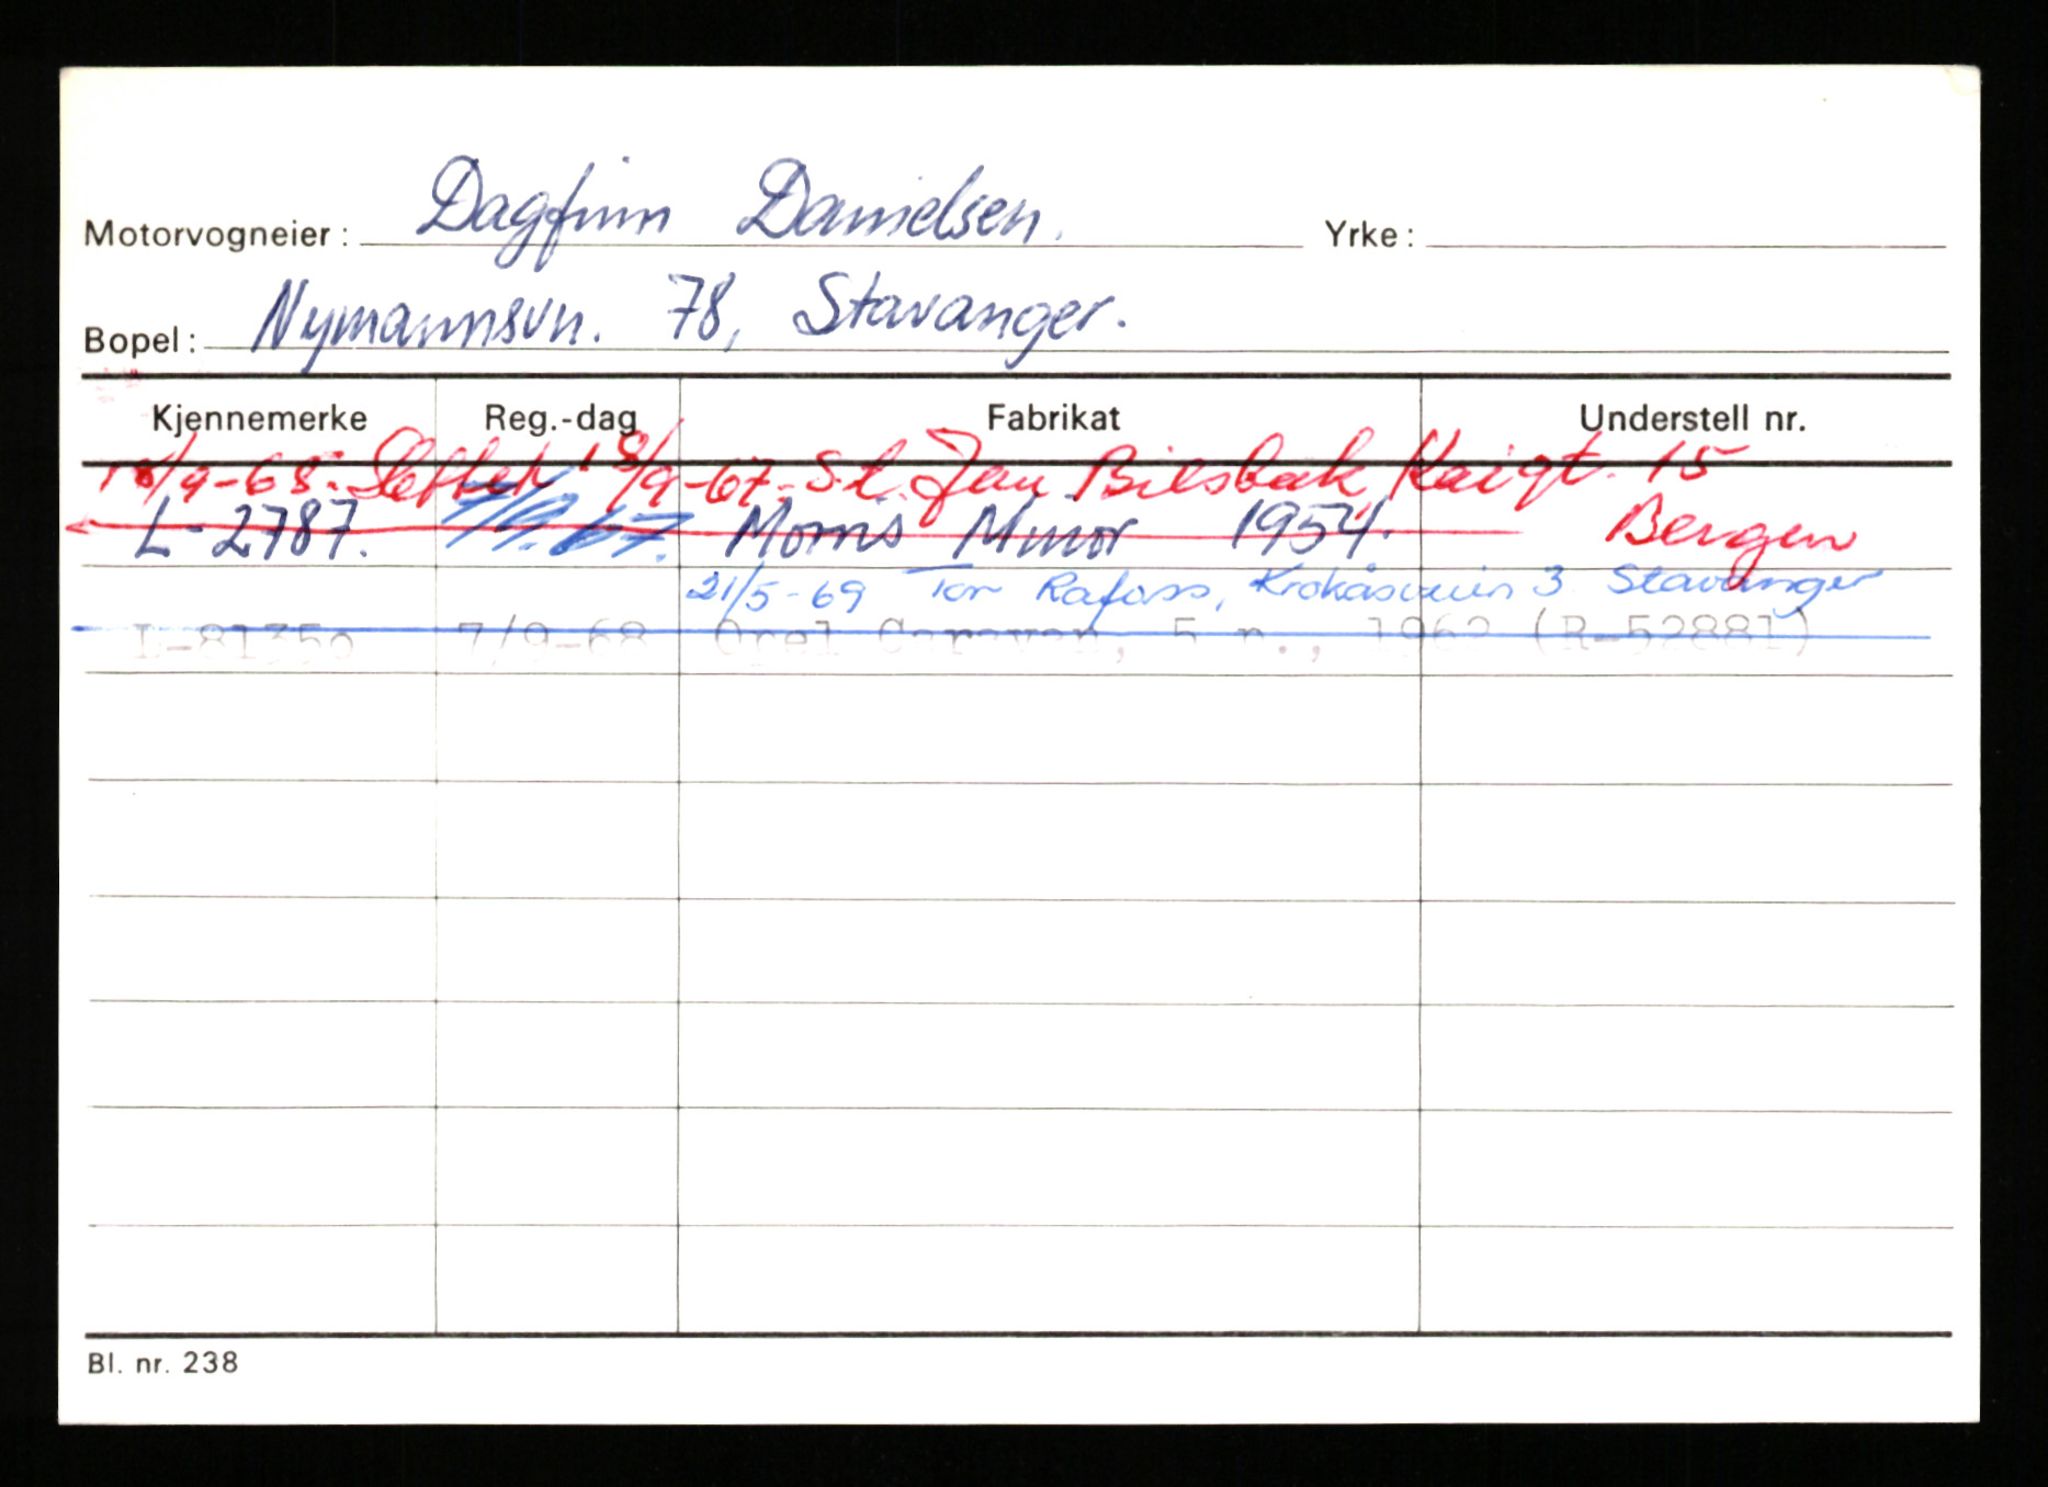 Motorvogneier: Dagfinn Danielsen. Yrke:
Bopel: Nymannsvn. 78, Stavanger.
Kjennemerke Reg.-dag Fabrikat Understell nr.
/9-68. Slettet 18/9-67. S.l. Jan Bilsbak Kaigt. 15
L-2787. 7/9.67. Morris Minor 1954. Bergen
21/5-69 Tor Rafoss, Krokåsveien 3 Stavanger
L-81350 7/9-68 Opel Caravan, 5 p., 1962 (R-52881)
Bl. nr. 238